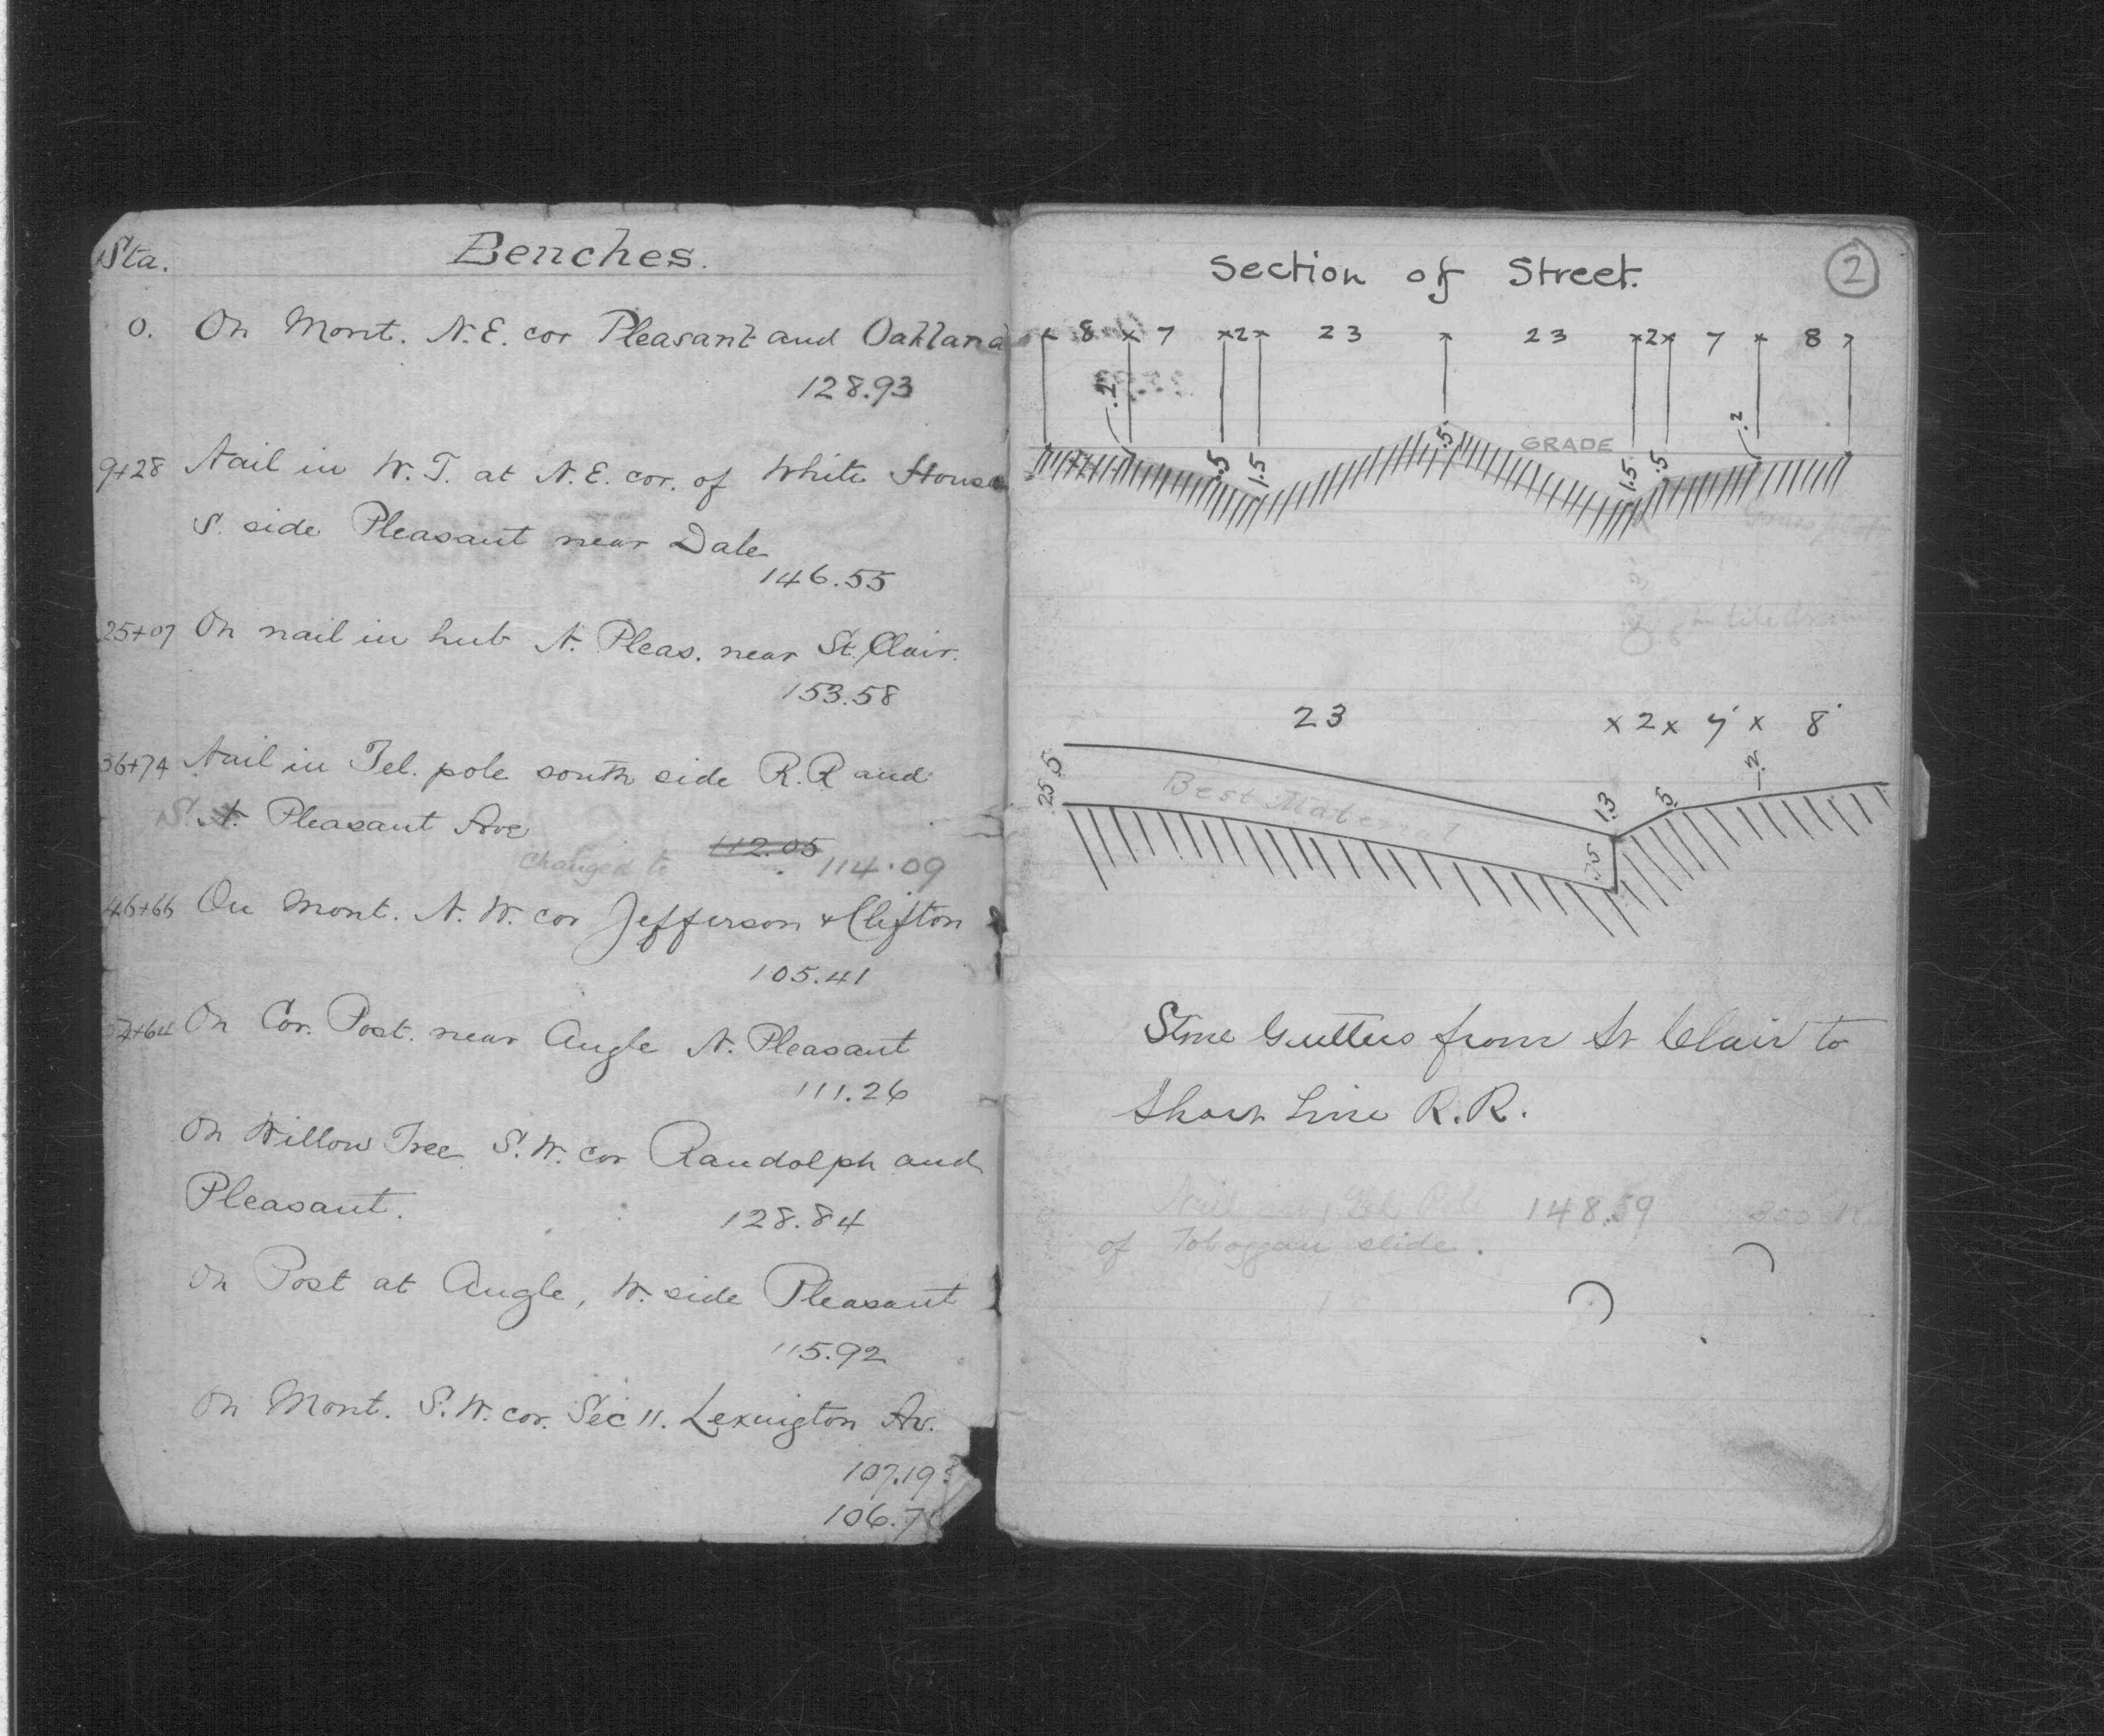 Sta. Benches.
0. On Mont. N.E. cor Pleasant and Oakland
128.93
9+28 Nail in W.T. at N.E. cor. of White House
S. side Pleasant near Dale
146.55
25+07 On nail in hub N. Pleas. near St. Clair.
153.58
36+74 Nail in Tel. pole south side R.R and
S. N. Pleasant Ave
changed to 112.05 114.09
46+66 On Mont. N.W. cor Jefferson & Clifton
105.41
54+64 On Cor. Post. near Angle N. Pleasant
111.26
On Willow Tree S.W. cor Randolph and
Pleasant. 128.84
On Post at Angle, W. side Pleasant
115.92
On Mont. S.W. cor. Sec 11. Lexington Av.
107.19
106.7
Section of Street. 2
8 x 7 x2x 23 x 23 x2x 7 x 8
.2 .2
GRADE
.5 1.5 .5 1.5 .5
tile
23 x 2 x 7 x 8
.5 .2
25 Best Material 1.3 .5
.75
Stone Gutters from St Clair to
Short Line R.R.
Nail in Tel. Pole 148.59 300 W.
of Toboggan slide.